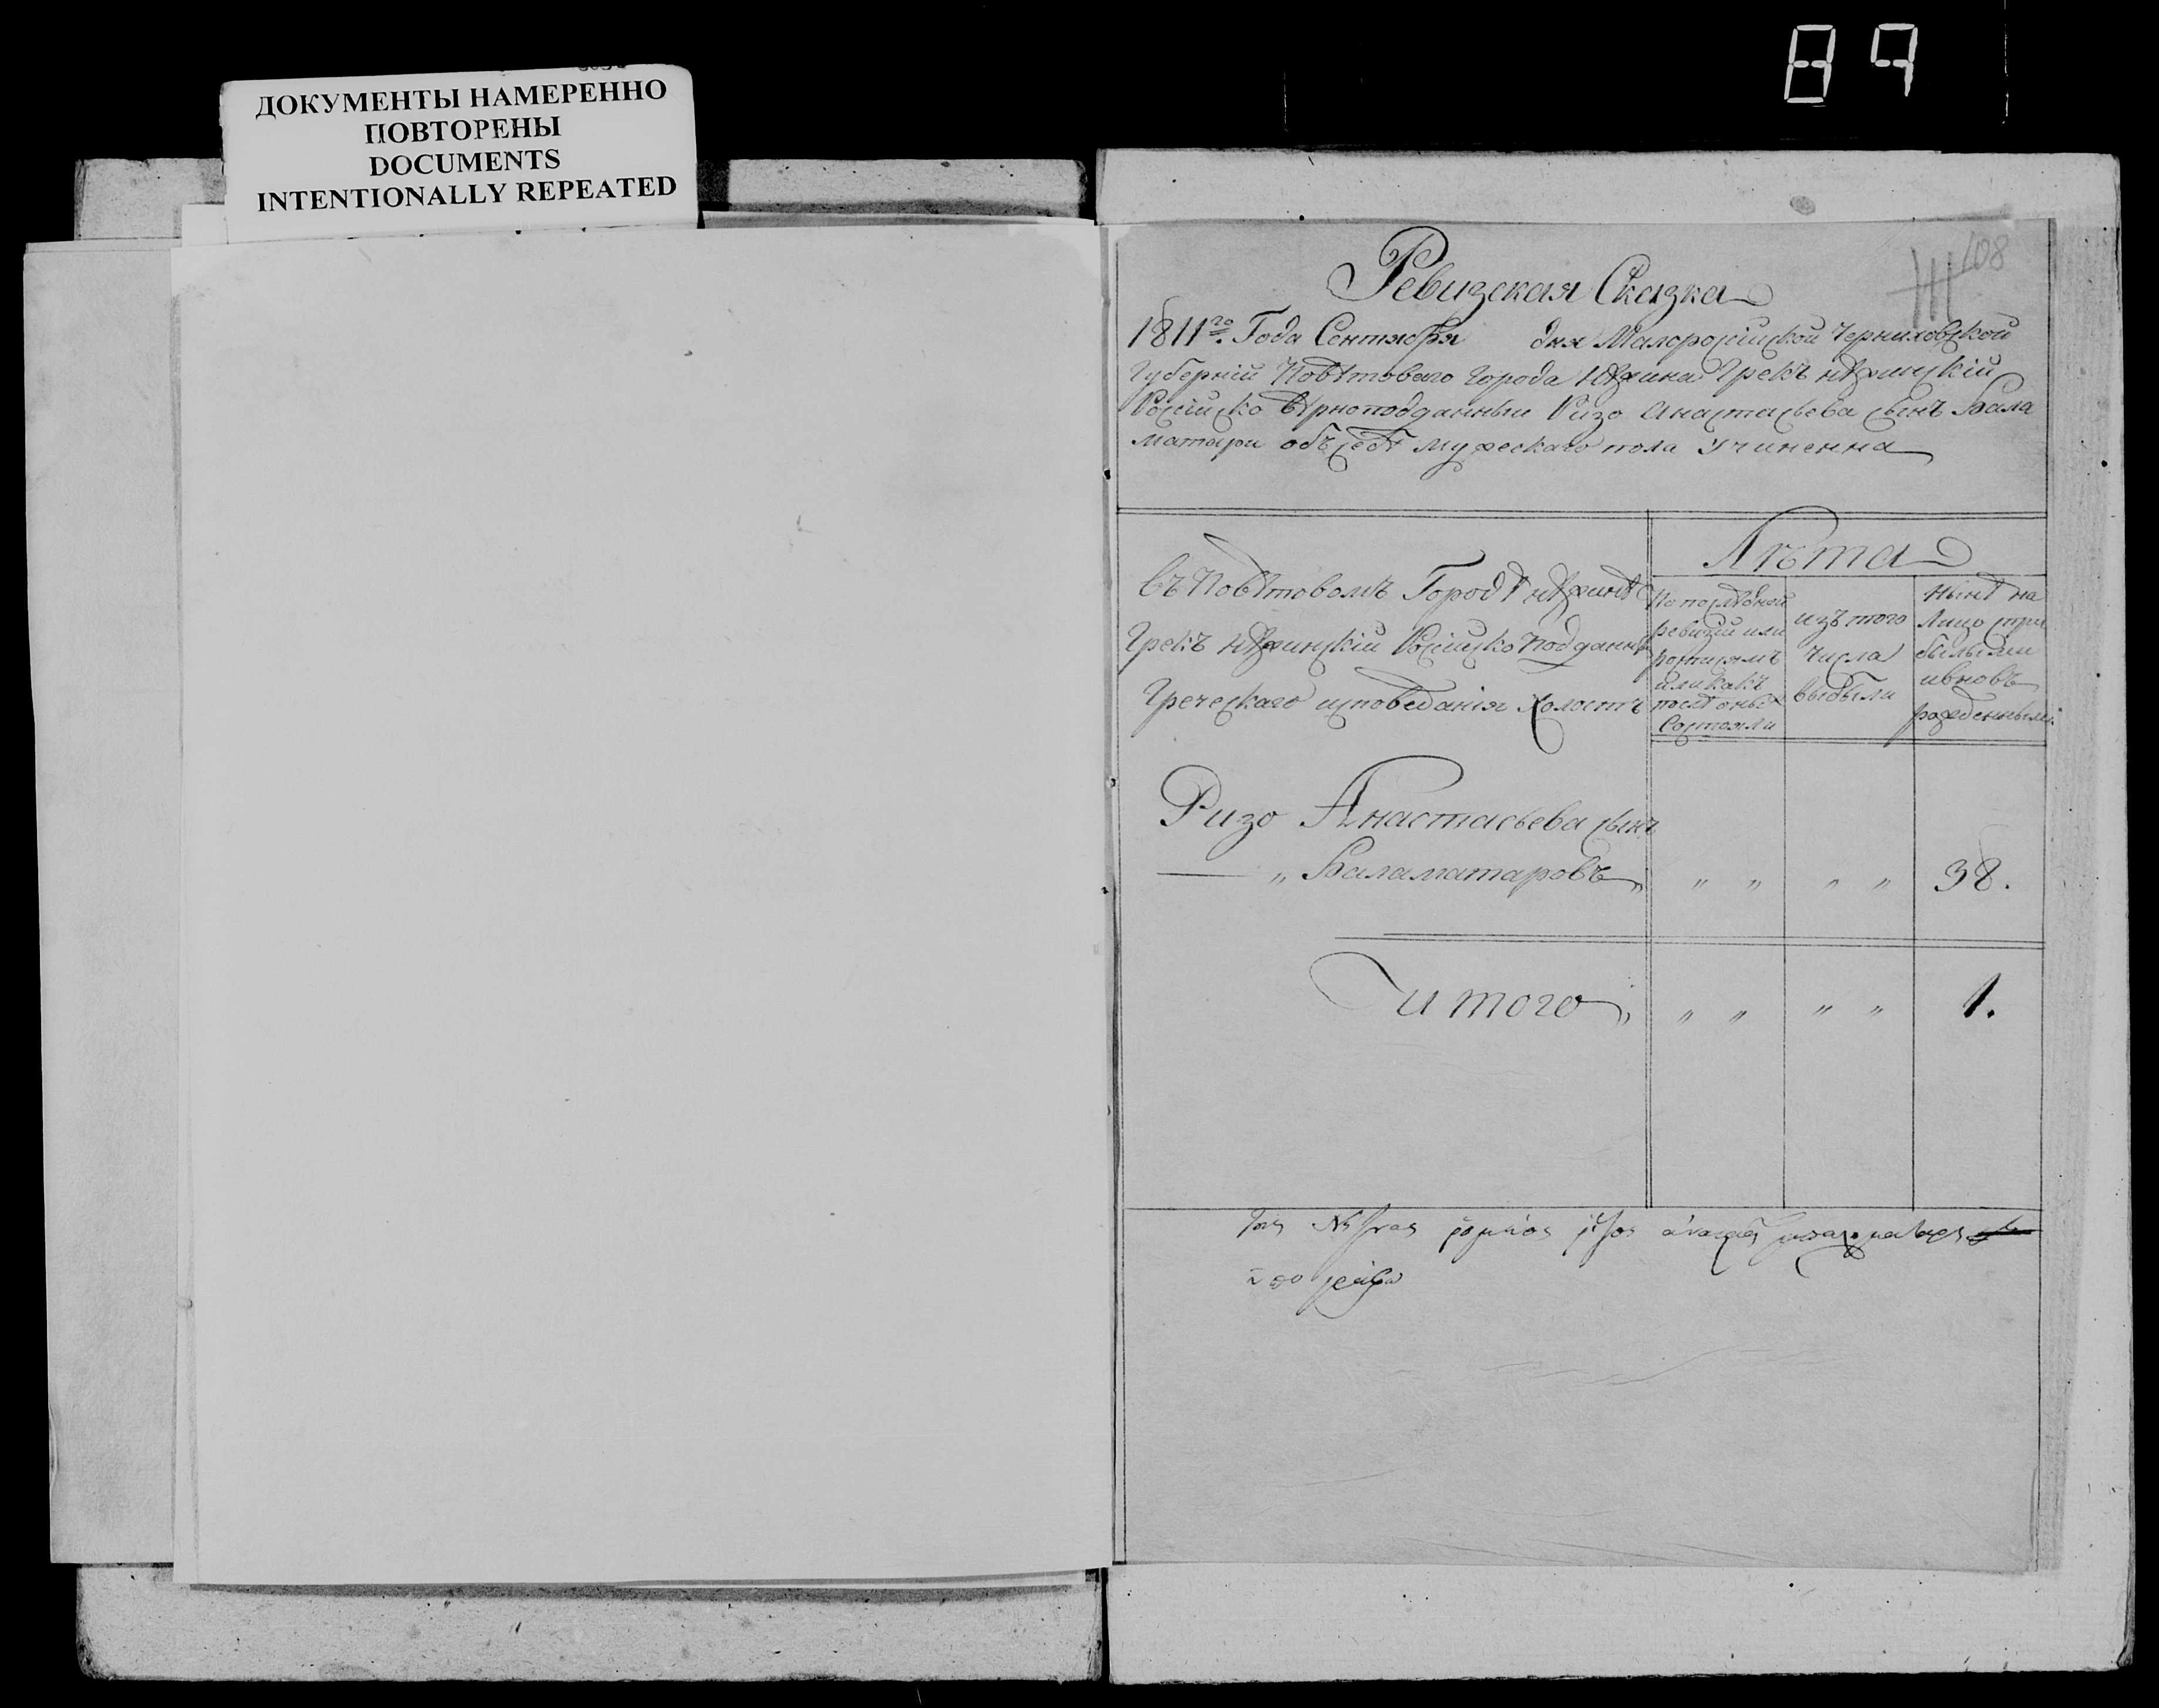 89
ДОКУМЕНТЫ НАМЕРЕННО
ПОВТОРЕНЫ
DOCUMENTS
INTENTIONALLY REPEATED
108
Ревизская Сказка
1811го. Года Сентября дня Малоросійской Черниховской
Губерніи Повѣтоваго Города Нѣжина Грекъ нѣжинскій
Російско вѣрноподданный Ризо Анастасьева сынъ Бала
матари объ себѣ мужескаго пола Учиненна
Лѣта
въ Повѣтовомъ Городѣ нѣжинѣ
Грекъ нѣжинскій Російско подданны
Греческаго исповеданія холостъ
По послѣдной
ревизіи или
росписямъ
или какъ
послѣ оныхъ
Состояли
изъ того
числа
выбыли
Нынѣ на
Лицо с при
былыми
и вновь
рожденными
Ризо Анастасьева сынъ
— „ Баламатаровъ „ „ „ „ „ 38.
итого „ „ „ „ „ 1.